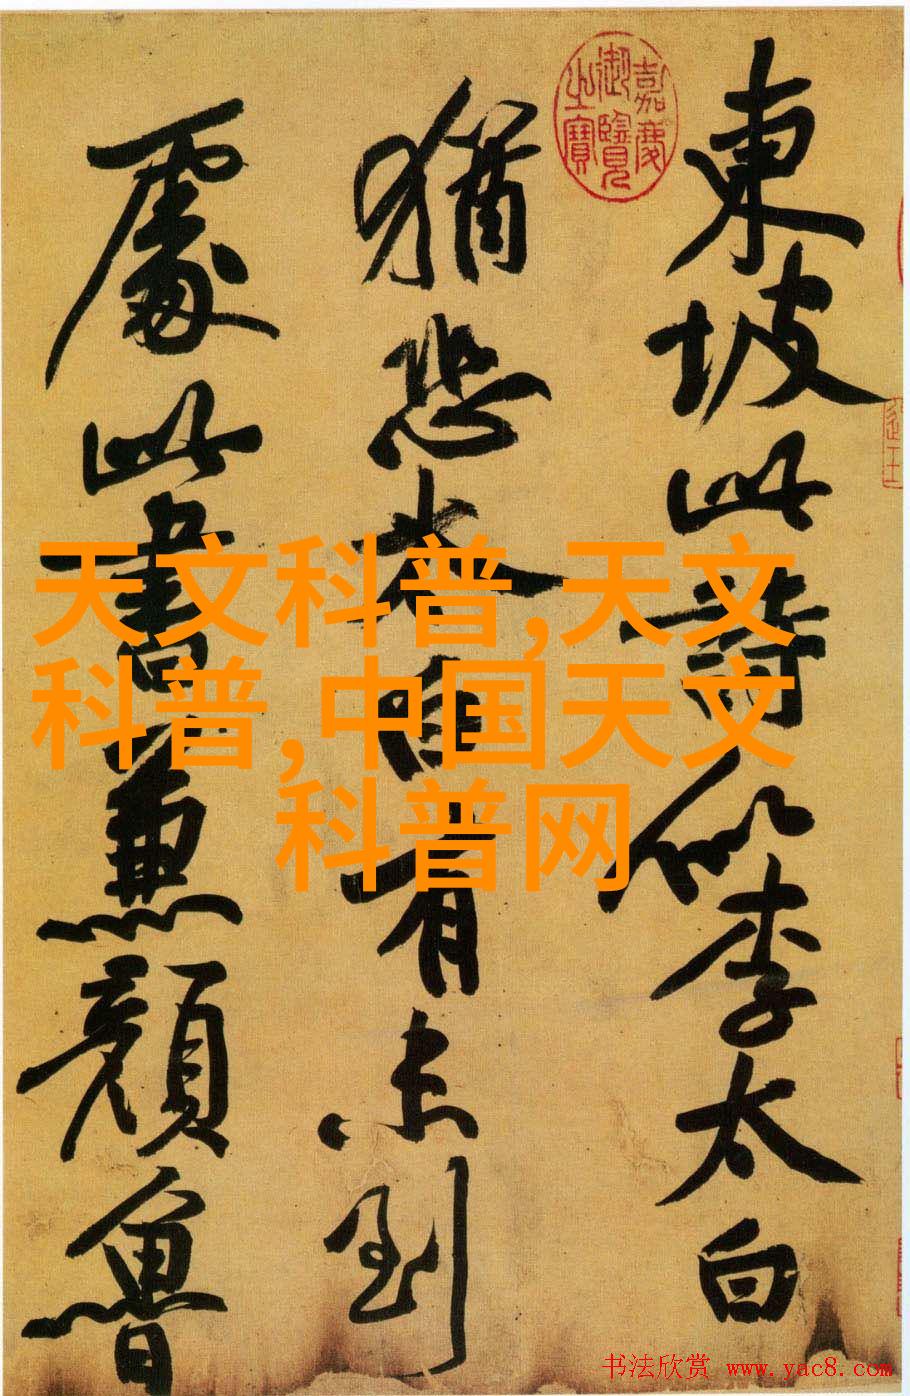 東坡此詩似李太白
猶恐太白有未到
處此書兼顔魯
嘉慶
御覽
之寶
天文科普,天文
科普,中国天文
科普网
书法欣赏 www.yac8.com